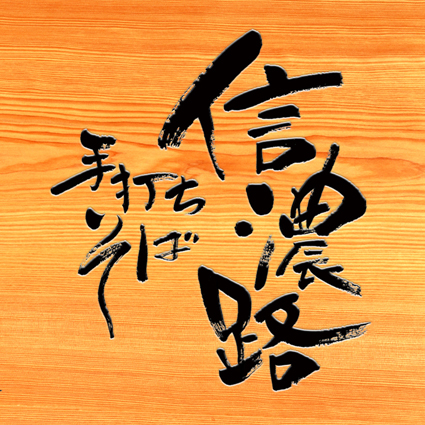 信濃路
手打ちそば